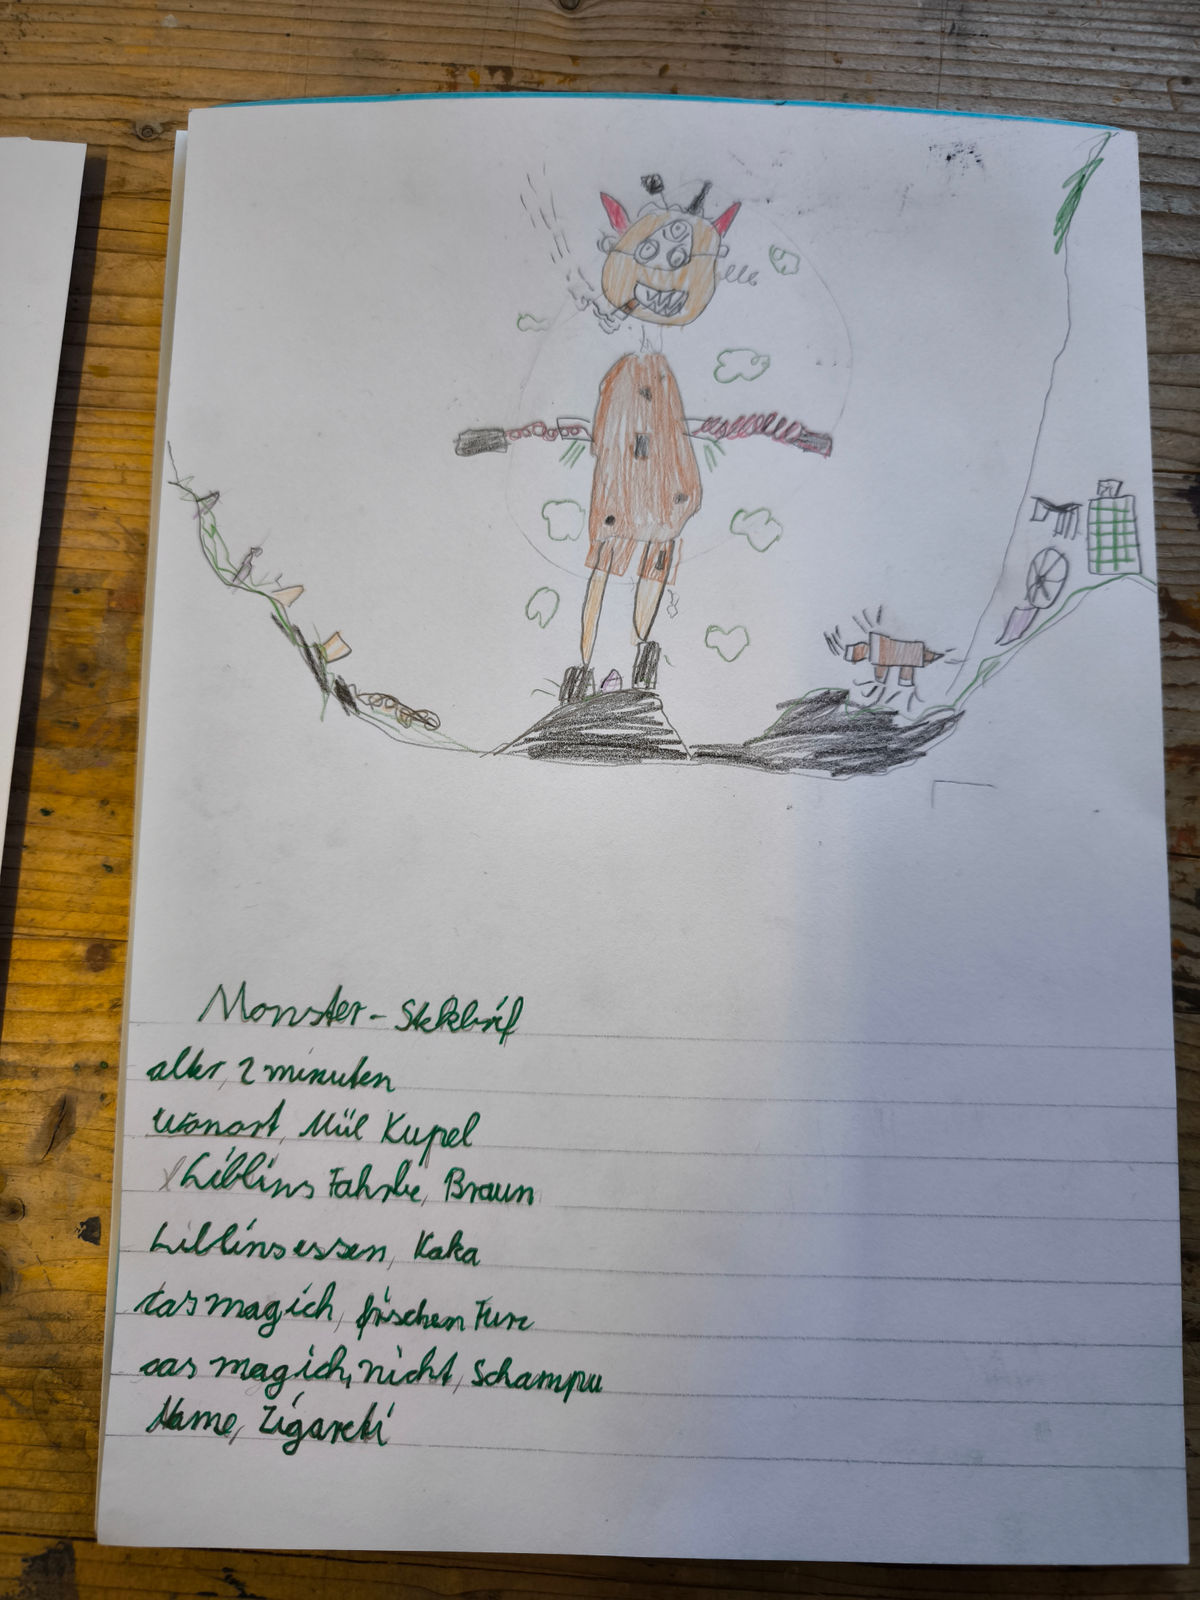 Monster-Stekbrif
alter, 2 minuten
wonort, Mül Kupel
Liblins Fahrbe, Braun
Liblinsessen, Kaka
das mag ich, frischen Furz
das mag ich, nicht, Schampu
Name, Zigaretti